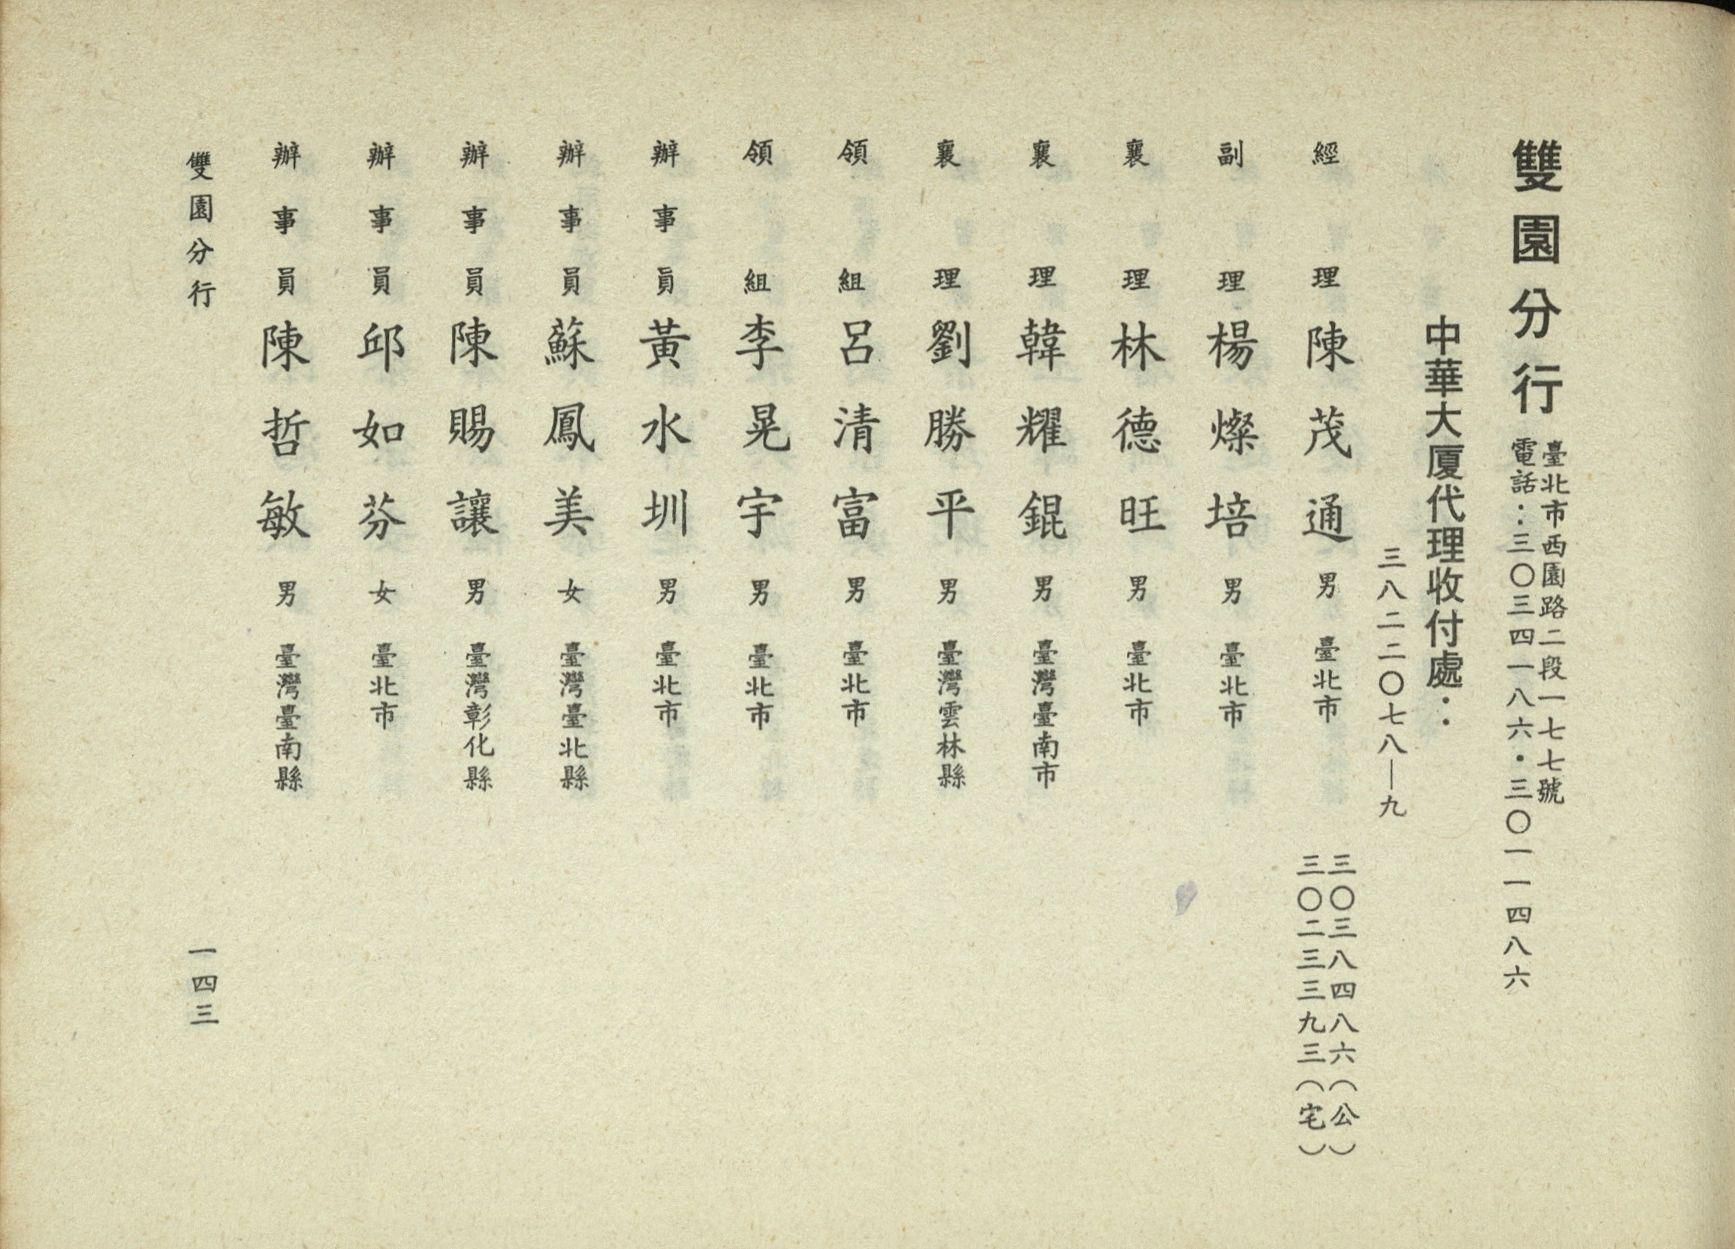 雙園分行
臺北市西園路二段一七七號
電話:三〇三四一八六・三〇一一四八六
中華大厦代理收付處:
三八二二〇七八—九
經理 陳茂通 男 臺北市 三〇三八四八六(公)
三〇二三三九三(宅)
副理 楊燦培 男 臺北市
襄理 林德旺 男 臺北市
襄理 韓耀錕 男 臺灣臺南市
襄理 劉勝平 男 臺灣雲林縣
領組 呂清富 男 臺北市
領組 李晃宇 男 臺北市
辦事員 黃水圳 男 臺北市
辦事員 蘇鳳美 女 臺灣臺北縣
辦事員 陳賜讓 男 臺灣彰化縣
辦事員 邱如芬 女 臺北市
辦事員 陳哲敏 男 臺灣臺南縣
雙園分行 一四三